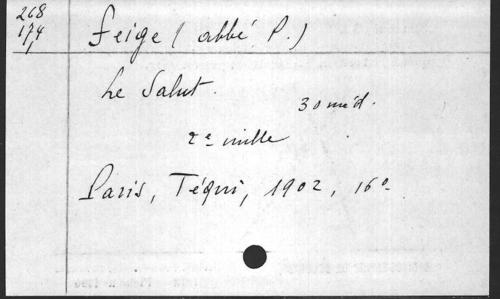 268
174
1
Feige (abbé P.)
Le Salut
30 méd.
2e mille
Paris, Téqui, 1902, 16o